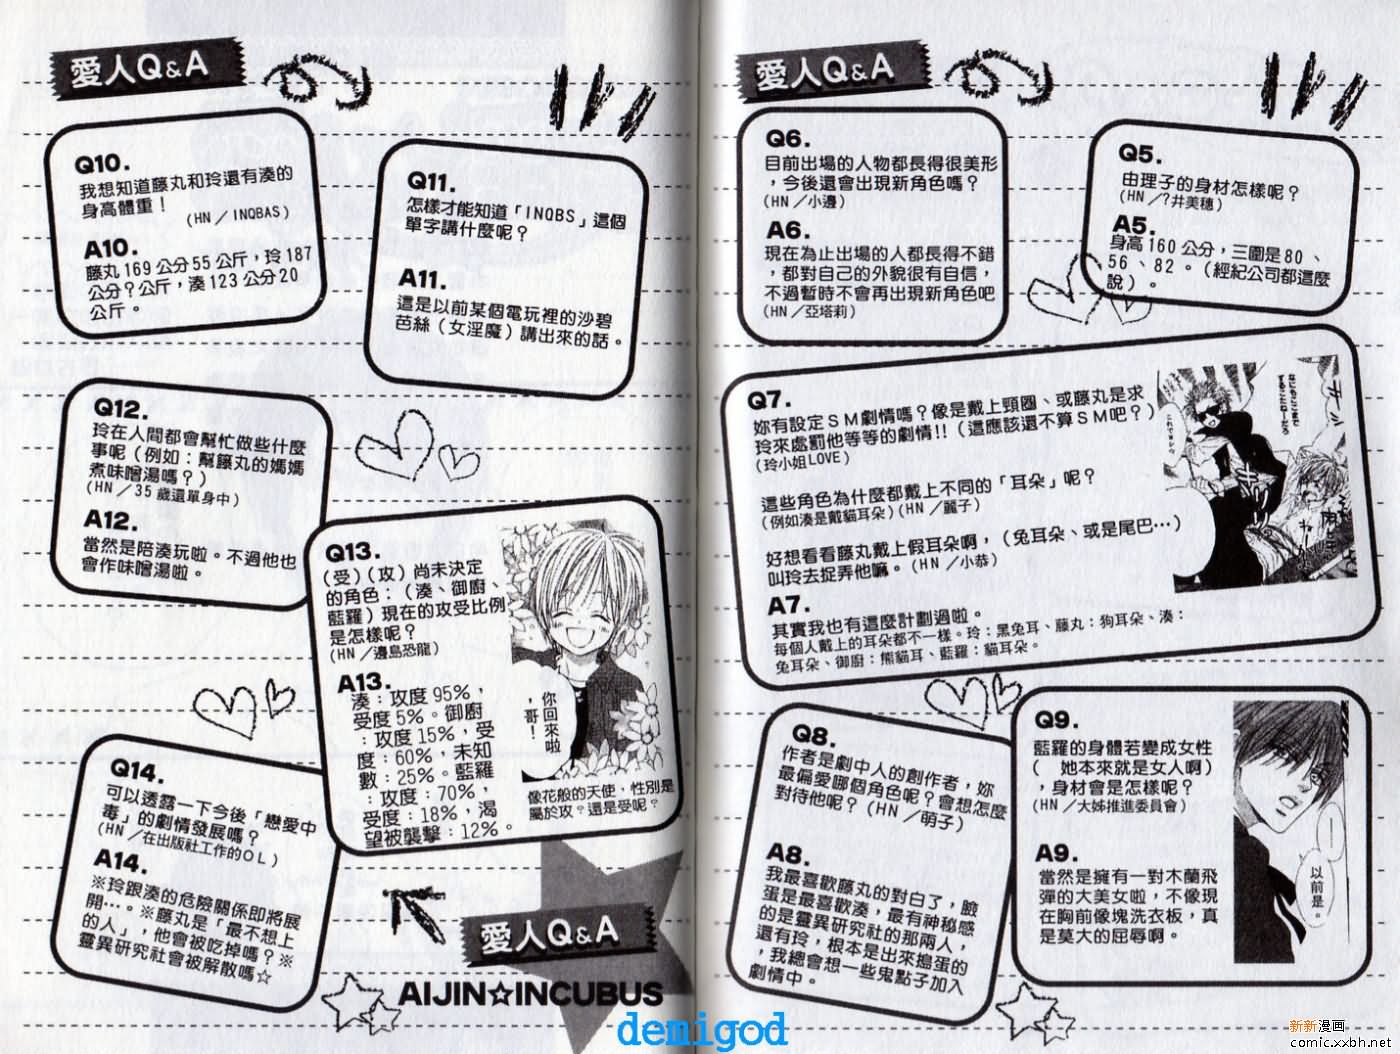 愛人Q&A
Q5.
由理子的身材怎樣呢？
(HN／?井美穗)
A5.
身高160公分，三圍是80、
56、82。（經紀公司都這麼
說）。
Q6.
目前出場的人物都長得很美形
，今後還會出現新角色嗎？
(HN／小邊)
A6.
現在為止出場的人都長得不錯
，都對自己的外貌很有自信，
不過暫時不會再出現新角色吧
(HN／亞塔莉)
Q7.
妳有設定SM劇情嗎？像是戴上頸圈、或藤丸是求
玲來處罰他等等的劇情!!（這應該還不算SM吧？）
(玲小姐LOVE)
這些角色為什麼都戴上不同的「耳朵」呢？
(例如湊是戴貓耳朵)(HN／麗子)
好想看看藤丸戴上假耳朵啊，（兔耳朵、或是尾巴…）
叫玲去捉弄他嘛。(HN／小恭)
A7.
其實我也有這麼計劃過啦。
每個人戴上的耳朵都不一樣。玲：黑兔耳、藤丸：狗耳朵、湊：
兔耳朵、御廚：熊貓耳、藍羅：貓耳朵。
Q8.
作者是劇中人的創作者，妳
最偏愛哪個角色呢？會想怎麼
對待他呢？(HN／萌子)
A8.
我最喜歡藤丸的對白了，臉
蛋是最喜歡湊，最有神秘感
的是靈異研究社的那兩人，
還有玲，根本是出來搗蛋的
，我總會想一些鬼點子加入
劇情中。
Q9.
藍羅的身體若變成女性
（　她本來就是女人啊）
，身材會是怎樣呢？
(HN／大姊推進委員會)
A9.
當然是擁有一對木蘭飛
彈的大美女啦，不像現
在胸前像塊洗衣板，真
是莫大的屈辱啊。
以前是。
愛人Q&A
Q10.
我想知道藤丸和玲還有湊的
身高體重！
(HN／INQBAS)
A10.
藤丸169公分55公斤，玲187
公分?公斤，湊123公分20
公斤。
Q11.
怎樣才能知道「INQBS」這個
單字講什麼呢？
A11.
這是以前某個電玩裡的沙碧
芭絲（女淫魔）講出來的話。
Q12.
玲在人間都會幫忙做些什麼
事呢（例如：幫籐丸的媽媽
煮味噌湯嗎？）
(HN／35歲還單身中)
A12.
當然是陪湊玩啦。不過他也
會作味噌湯啦。
Q13.
(受)(攻)尚未決定
的角色：（湊、御廚、
藍羅）現在的攻受比例
是怎樣呢？
(HN／邊島恐龍)
A13.
湊：攻度95%，
受度5%。御廚
：攻度15%，受
度：60%，未知
數：25%。藍羅
：攻度：70%，
受度：18%，渴
望被襲擊：12%。
你回來啦
，哥！
像花般的天使，性別是
屬於攻？還是受呢？
Q14.
可以透露一下今後「戀愛中
毒」的劇情發展嗎？
(HN／在出版社工作的OL)
A14.
※玲跟湊的危險關係即將展
開…。※藤丸是「最不想上
的人」，他會被吃掉嗎？※
靈異研究社會被解散嗎☆
愛人Q&A
AIJIN☆INCUBUS
demigod
新新漫画
comic.xxbh.net